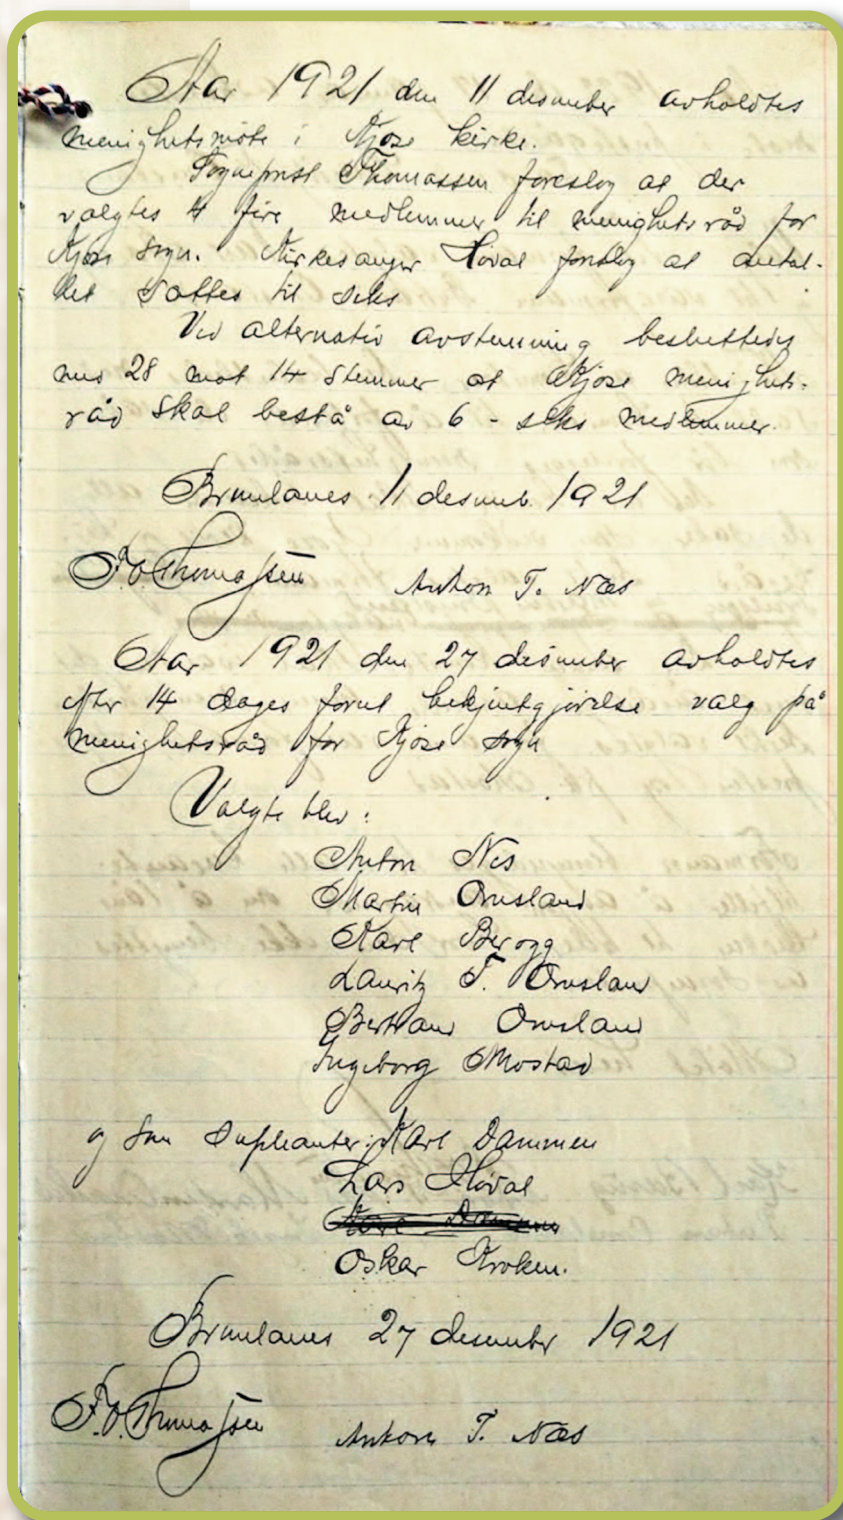 Aar 1921 den 11 desember avholdtes
menighetsmøte i Kjose kirke.
Sogneprest Thomassen foreslog at der
valgtes 4 fire medlemmer til menighetsråd for
Kjose sogn. Kirkesanger Høval foreslog at antal-
let sattes til seks
Ved alternativ avstemning besluttedes
med 28 mot 14 stemmer at Kjose menighets-
råd skal bestå av 6 - seks medlemmer.
Brunlanes 11 desemb. 1921
F.O. Thomassen Anton T. Næs
Aar 1921 den 27 desember avholdtes
efter 14 dages forut bekjentgjørelse valg på
menighetsråd for Kjose sogn
Valgte blev:
Anton Nes
Martin Omsland
Karl Berogg
Lauritz T. Omsland
Bertrand Omsland
Ingeborg Mostad
og som supleanter: Karl Dammen
Lars Høval
Karl Dammen
Oskar Kroken.
Brunlanes 27 desember 1921
F.O. Thomassen Anton T. Næs